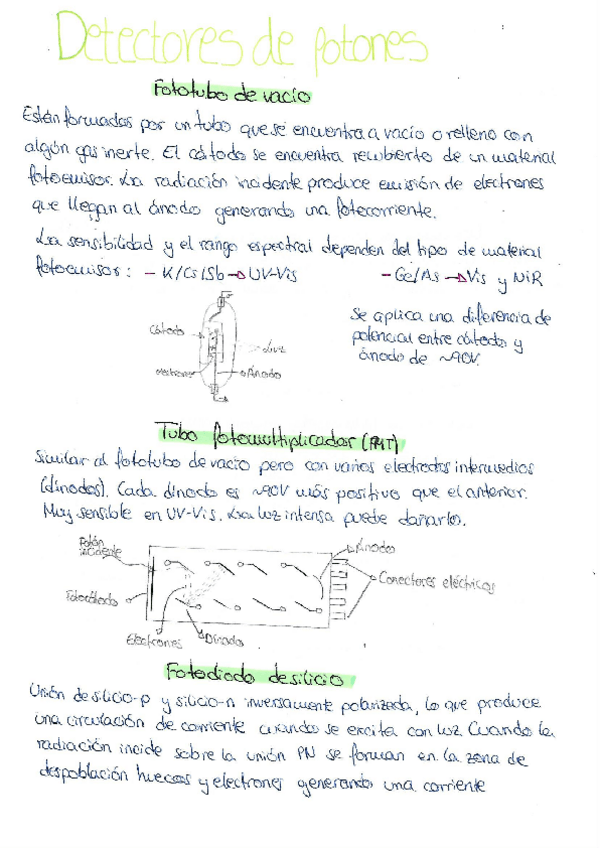 Detectores de fotones
Fototubo de vacío
Están formados por un tubo que se encuentra a vacío o relleno con
algún gas inerte. El cátodo se encuentra recubierto de un material
fotoemisor. La radiación incidente produce emisión de electrones
que llegan al ánodo generando una fotocorriente.
La sensibilidad y el rango espectral dependen del tipo de material
fotoemisor: - K/Cs/Sb → UV-Vis - Ge/As → Vis y NiR
Se aplica una diferencia de
potencial entre cátodo y
ánodo de ~90V.
Cátodo
Luz
electrones
Ánodo
Tubo fotomultiplicador (PMT)
Similar al fototubo de vacío pero con varios electrodos intermedios
(dínodos). Cada dínodo es ~90V más positivo que el anterior.
Muy sensible en UV-Vis. La luz intensa puede dañarlo.
Fotón
incidente
Ánodo
Conectores eléctricos
Fotocátodo
Electrones
Dínodo
Fotodiodo de silicio
Unión de silicio-p y silicio-n inversamente polarizada, lo que produce
una circulación de corriente cuando se excita con luz. Cuando la
radiación incide sobre la unión PN se forman en la zona de
despoblación huecos y electrones generando una corriente